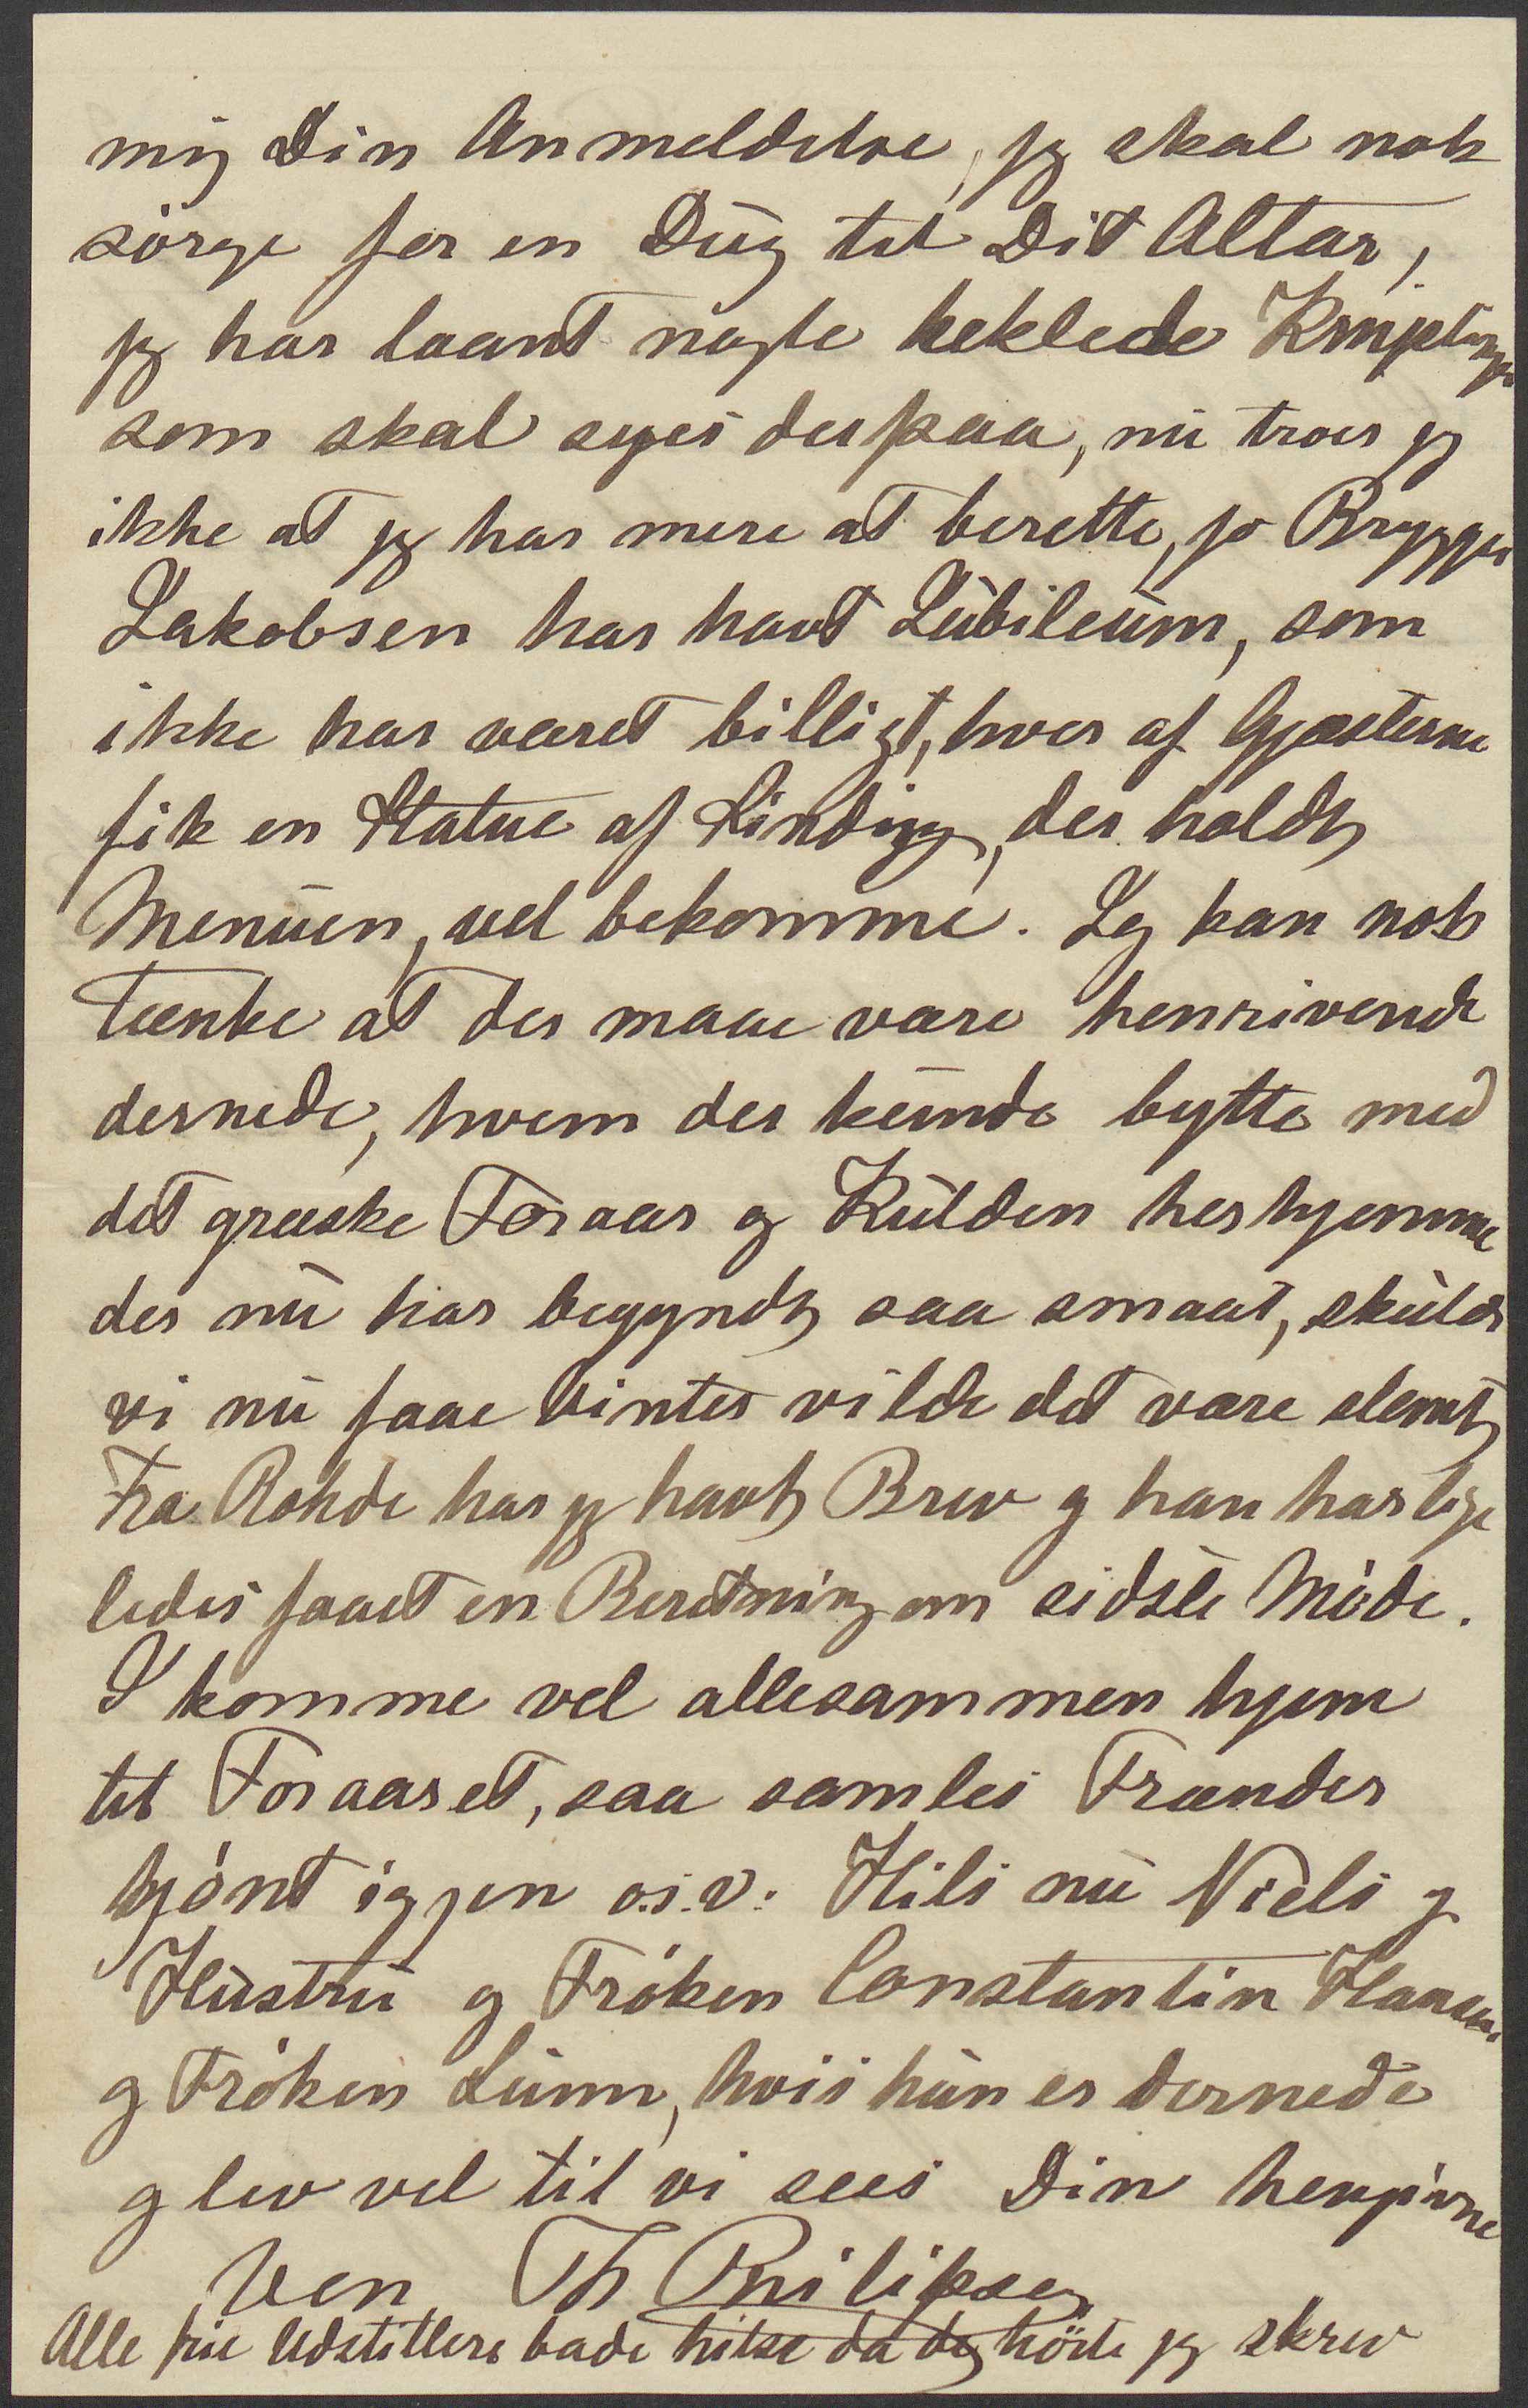 mig Din Anmeldelse, jeg skal nok
sörge for en Dug til Dit Altar,
jeg har laant nogle heklede
som skal syes derpaa, nu troer jeg
ikke at jeg har mere at berette, jo Brygger
Jakobsen har havt Jubileum, som
ikke har været billigt, hver af Gjæsterne
fik en Statue af Sinding, der holdt
Menuen, vel bekomme. Jeg kan nok
tænke at der maae være henrivende
dernede, hvem der kunde bytte med
det græske Foraar og Kulden herhjemme
der nu har begyndt saa smaat, skulde
vi nu faae Vinter vilde det være slemt,
Fra Rohde har jeg havt Brev og han har lige
ledes faaet en Beretning om sidste Möde.
I komme vel allesammen hjem
til Foraaret, saa samles Frænder
kjönt igjen o.s.v. Hils nu Niels og
Hustru og Fröken Constantin Hansen
og Fröken Lunn, hvis hun er dernede
og lev vel til vi sees Din hengivne
Ven Th Philipsen
Alle frie Udstillere bade hilse da de hörte jeg skrev